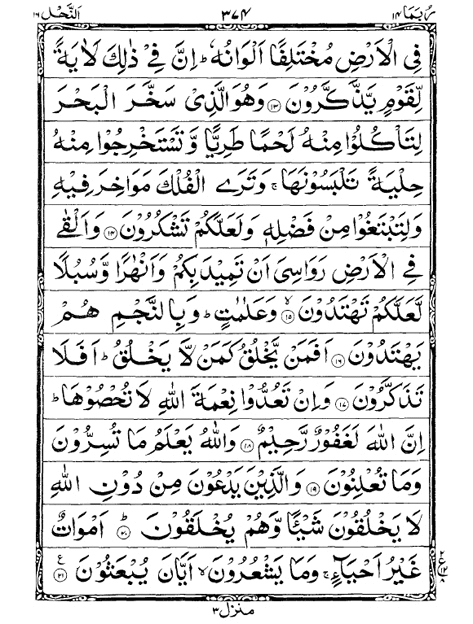 رُبَمَا ١٤ ٣٧٤ اَلنَّحْل ١٦
فِي الْاَرْضِ مُخْتَلِفًا اَلْوَانُهٗ ؕ اِنَّ فِيْ ذٰلِكَ لَاٰيَةً
لِّقَوْمٍ يَّذَّكَّرُوْنَ ۝۱۳ وَهُوَ الَّذِيْ سَخَّرَ الْبَحْرَ
لِتَاْكُلُوْا مِنْهُ لَحْمًا طَرِيًّا وَّتَسْتَخْرِجُوْا مِنْهُ
حِلْيَةً تَلْبَسُوْنَهَا ۚ وَتَرَى الْفُلْكَ مَوَاخِرَ فِيْهِ
وَلِتَبْتَغُوْا مِنْ فَضْلِهٖ وَلَعَلَّكُمْ تَشْكُرُوْنَ ۝۱۴ وَاَلْقٰى
فِي الْاَرْضِ رَوَاسِيَ اَنْ تَمِيْدَ بِكُمْ وَاَنْهٰرًا وَّسُبُلًا
لَّعَلَّكُمْ تَهْتَدُوْنَ ۝۱۵ۙ وَعَلٰمٰتٍ ؕ وَبِالنَّجْمِ هُمْ
يَهْتَدُوْنَ ۝۱۶ اَفَمَنْ يَّخْلُقُ كَمَنْ لَّا يَخْلُقُ ؕ اَفَلَا
تَذَكَّرُوْنَ ۝۱۷ وَاِنْ تَعُدُّوْا نِعْمَةَ اللّٰهِ لَا تُحْصُوْهَا ؕ
اِنَّ اللّٰهَ لَغَفُوْرٌ رَّحِيْمٌ ۝۱۸ وَاللّٰهُ يَعْلَمُ مَا تُسِرُّوْنَ
وَمَا تُعْلِنُوْنَ ۝۱۹ وَالَّذِيْنَ يَدْعُوْنَ مِنْ دُوْنِ اللّٰهِ
لَا يَخْلُقُوْنَ شَيْـًٔا وَّهُمْ يُخْلَقُوْنَ ۝۲۰ؕ اَمْوَاتٌ
غَيْرُ اَحْيَآءٍ ۚ وَمَا يَشْعُرُوْنَ ۙ اَيَّانَ يُبْعَثُوْنَ ۝۲۱ ع
منزل ٣